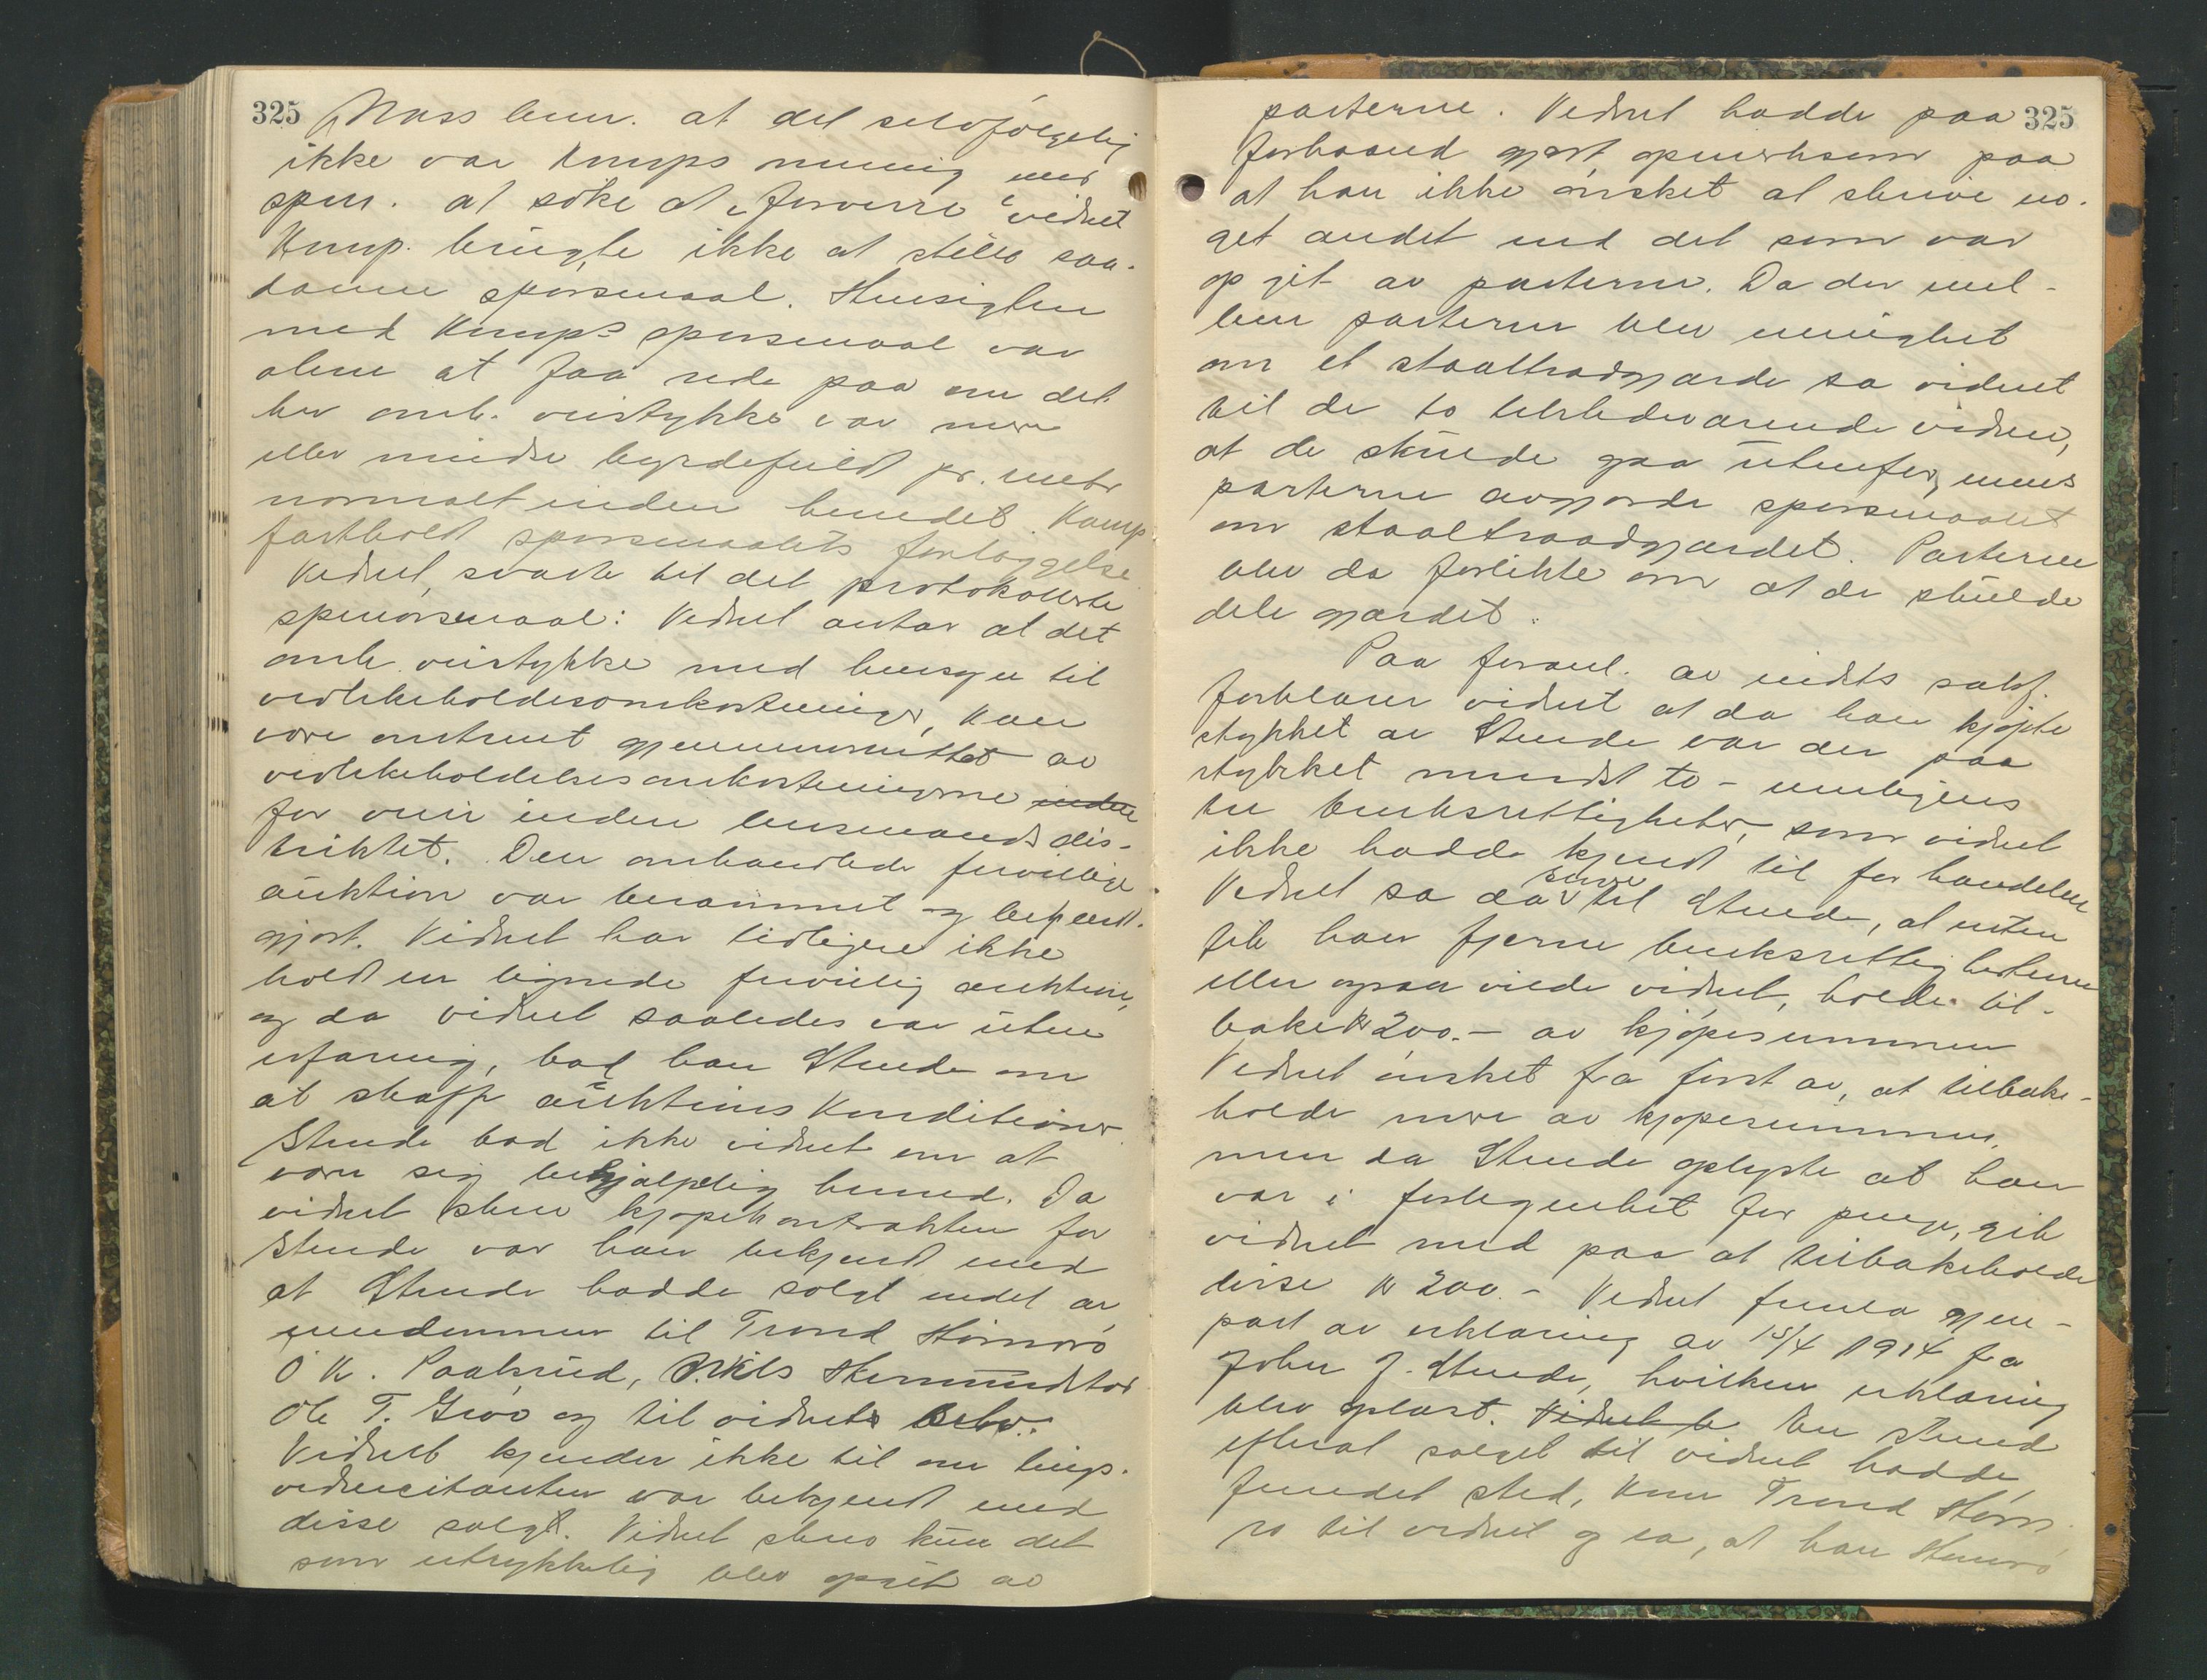 325
Mass bem. at det selvfölgelig
ikke var Kmps mening med
spm. at söke at "forvirre" vidnet
Kmp. brugte ikke at stille saa-
danne spörsmaal. Hensigten
med Kmps spörsmaal var
alene at faa rede paa om det
her omh. veistykke var mere
eller mindre byrdefuldt pr. meter
normalt inden bundet. Kmp.
fastholdt spörsmaalets forlæggelse
Vidnet svarte til det protokollerte
spörsmaal: Vidnet antar at det
omh. veistykke med hensyn til
vedlikeholdesomkostninger, kan
være omtrent gjennemsnittet av
vedlikeholdelsesomkostningerne inden
for veier inden lensmandsdis-
triktet. Den omhandlede frivillige
auktion var berammet og bekjendt-
gjort. Vidnet har tidligere ikke
holdt en lignende frivillig auktion,
og da vidnet saaledes var uten
erfaring, bad han Stende om
at skaffe auktions konditioner
Stende bad ikke vidnet om at
være sig behjælpelig hermed. Da
vidnet skrev kjöpekontrakten for
Stende var han bekjendt med
at Stende hadde solgt endel av
eiendommen til Trond
O K. Paalsrud, Nils
Ole T. og til vidnets
Vidnet kjender ikke til om tings-
vidnecitanten var bekjendt med
disse salgt. Vidnet skrev kun det
som utrykkelig blev opgit av
325
parterne. Vidnet hadde paa
forhaand gjort opmerksom paa
at han ikke önsket at skrive no-
get andet end det som var
opgit av parterne. Da der mel-
lem parterne blev uenighet
om et staaltraadgjærde sa vidnet
til de to tilstedeværende vidner,
at de skulde gaa utenfor, mens
parterne avgjorde spörsmaalet
om staaltraadgjærdet. Parterne
blev da forlikte om at de skulde
dele gjærdet.
Paa foranl. av indst. sakf.
forklarer vidnet at da han kjöpte
stykket av Stende var der paa
stykket mindst to - muligens
tre bruksrettigheter, som vidnet
ikke hadde kjendt til för handelen
Vidnet sa da til Stende, at enten
fik han fjerne bruksrettigheterne
eller ogsaa vilde vidnet, holde til-
bake kr 200.- av kjöpesummen
Vidnet önsket fra först av, at tilbake-
holde mere av kjöpesummen,
men da Stende oplyste at han
var i forlegenhet for penge, gik
vidnet med paa at tilbakeholde
disse kr 200.- Vidnet fremla gjen-
part av erklæring av 15/4 1914 fra
John J. Stende, hvilken erklæring
blev oplæst. Vidnet b En stund
efterat salget til vidnet hadde
fundet sted, kom Trond
til vidnet og sa, at han